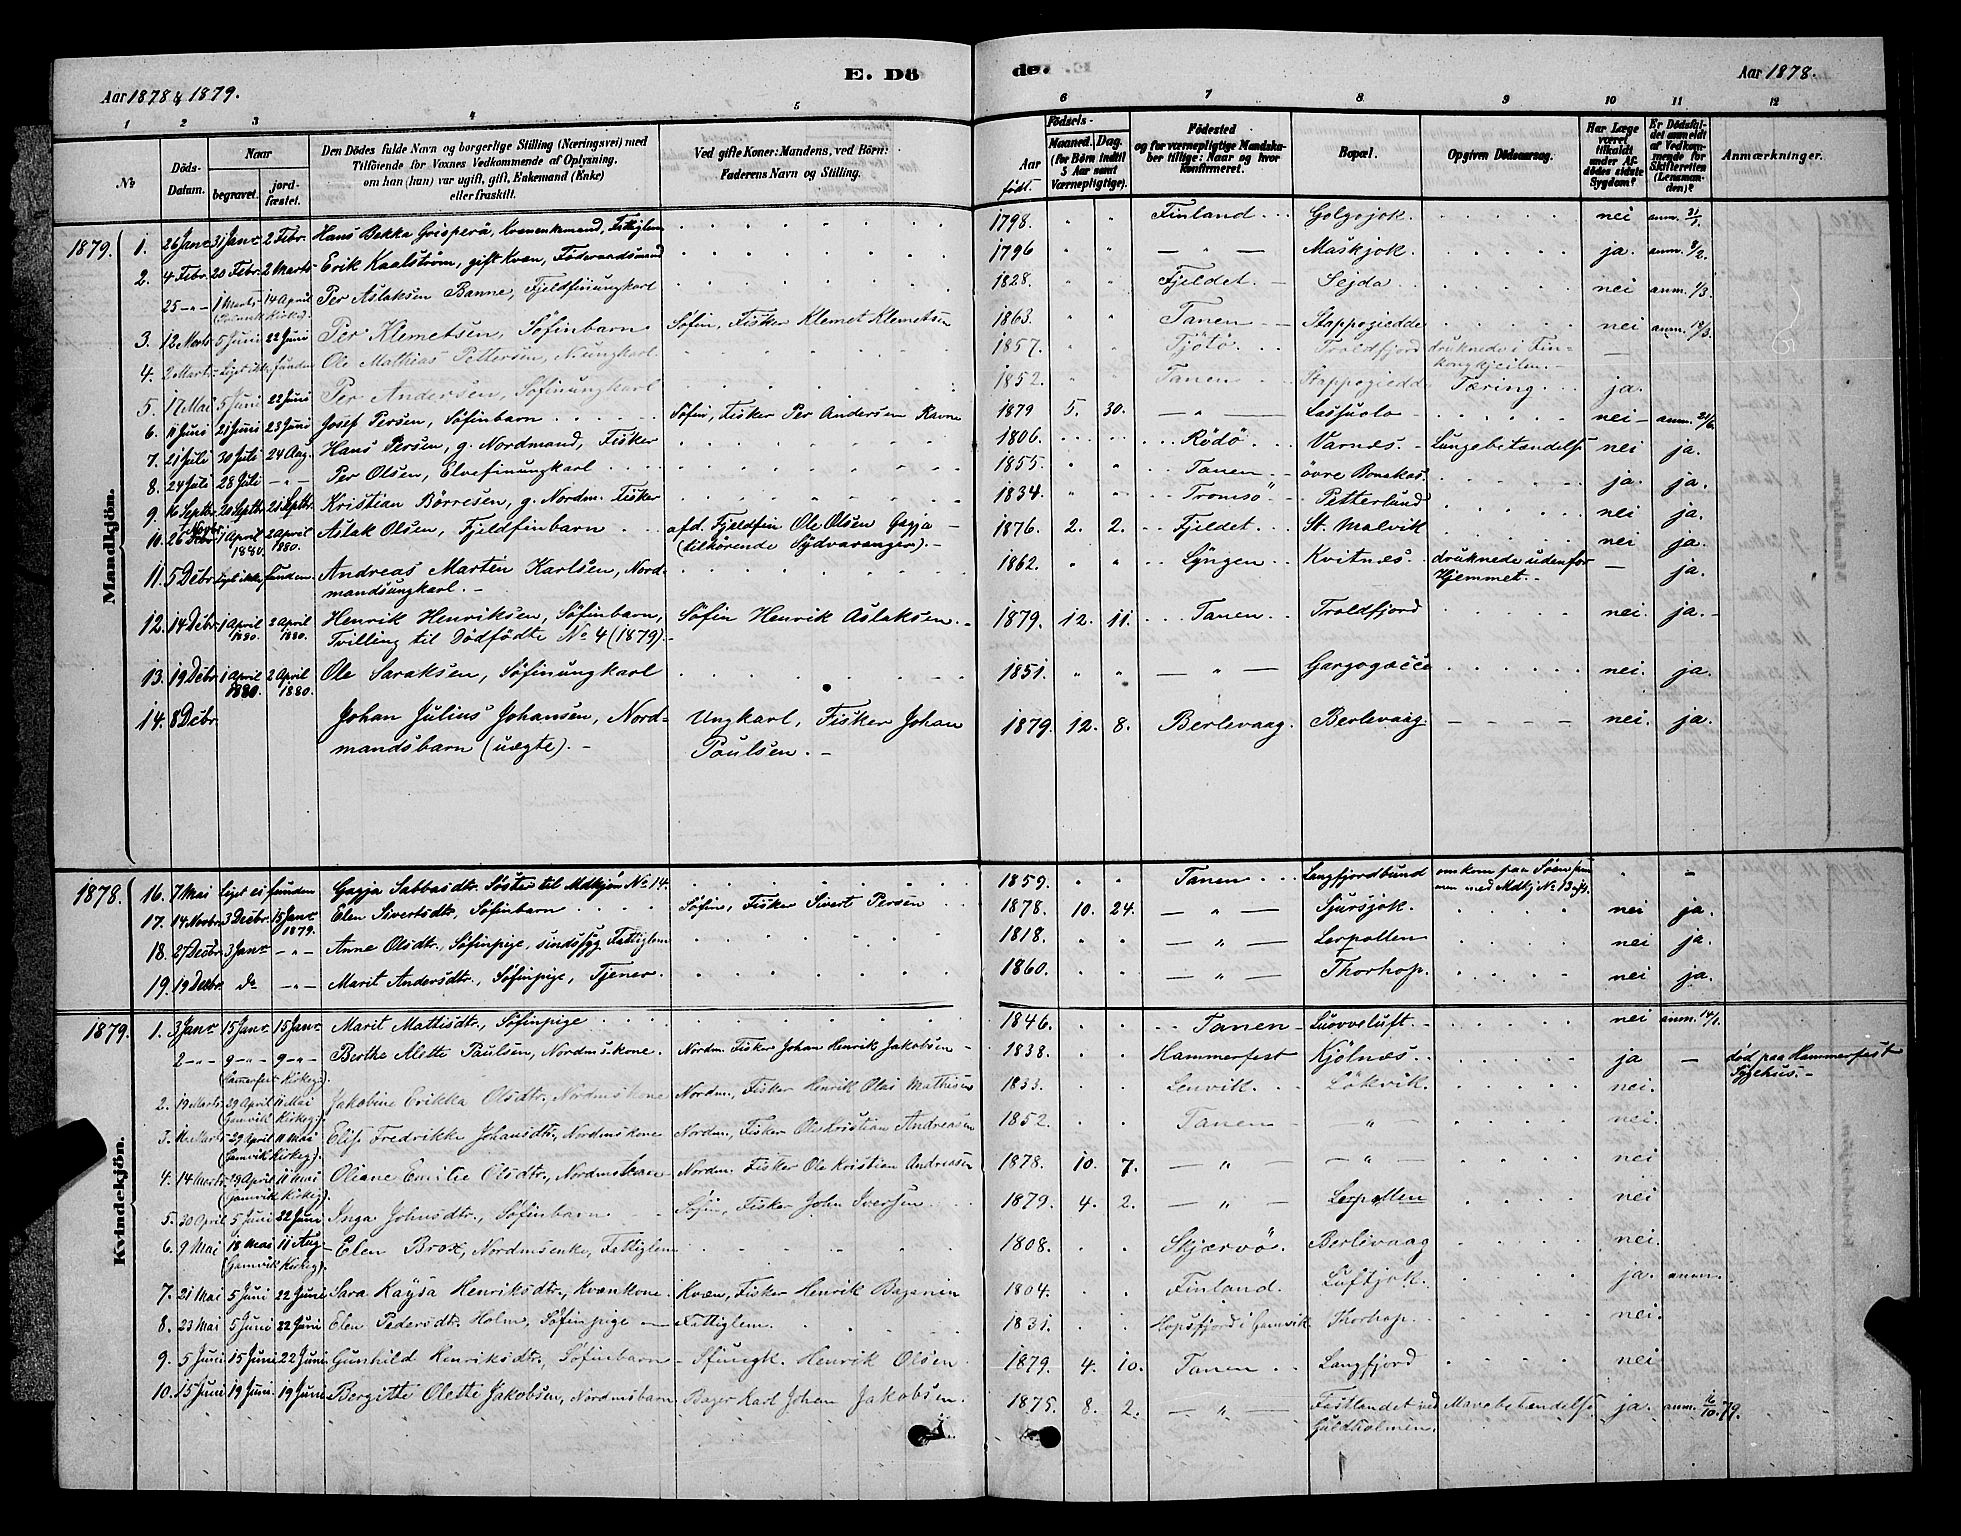 E. Dö de.
Aar 1878 & 1879.
Aar 1878.
1 2 3 4 5 6 7 8 9 10 11 12
No.
Döds-Datum.
Naar
begravet.
jord-fæstet.
Den Dödes fulde Navn og borgerlige Stilling (Næringsvei) med
Tilföiende for Voxnes Vedkommende af Oplysning,
om han (hun) var ugift, gift, Enkemand (Enke)
eller fraskilt.
Ved gifte Koner: Mandens, ved Börn:
Faderens Navn og Stilling.
Aar født.
Födsels-
Maaned. Dag.
(for Börn indtil 5 Aar samt Værnepligtige).
Födested
og for værnepligtige Mandska-
ber tillige: Naar og hvor
konfirmeret.
Bopæl.
Opgiven Dödsaarsag.
Har Læge været tilkaldt under Afdödes sidste Sygdom?
Er Dödsfaldet anmeldt af Vedkommende for Skifteretten (Lensmanden)?
Anmærkninger.
Mandkjön.
1879 1. 26 Janr 31 Janr 2 Febr. Hans Bekka Grisperä, kvænenkemand, Fattiglem 1798. Finland Golgojok. nei anm. 31/1.
2. 4 Febr. 20 Febr. 2 Marts Erik Kaalström, gift Kvæn, Föderaadsmand 1796 — " — Maskjok. ja. anm. 8/2.
25 — 1 Marts 14 April Per Aslaksen Banne, Fjeldfinungkarl 1828. Fjeldet. Sejda nei anm. 1/3.
3. 12 Marts 5 Juni 22 Juni Per Klemetsen, Söfinbarn Söfin, Fisker Klemet Klemetsen 1863. Tanen Stappogiedde nei anm. 14/3.
4. 2 Marts Liget ikke funden Ole Mathias Pettersen, N.ungkarl. 1857. Tjötö Troldfjord druknede i Fin-
kongkjeilen. —
5. 17 Mai 5 Juni 22 Juni Per Andersen, Söfinungkarl 1852. Tanen Stappogiedde Tæring. ja.
6. 11 Juni 21 Juni 23 Juni Josef Persen, Söfinbarn Söfin, Fisker Per Andersen Ravna 1879 5. 30. — " — Lassuolo nei anm. 21/6.
7. 21 Juli 30 Juli 24 Aug. Hans Persen, g. Nordmand, Fisker 1806. Rödö Varnæs. Lungebetændelse nei ja.
8. 24 Juli 28 Juli — " — Per Olsen, Elvefinungkarl 1855. Tanen övre Bonakas ja. ja.
9 16 Septbr 20 Septbr 21 Septbr. Kristian Börresen, g. Nordm. Fisker 1834. Tromsö Petterlund nei ja.
10. 26 Debr. 1 April 1880. 2 April 1880. Aslak Olsen, Fjeldfinbarn afd. Fjeldfin Ole Olsen Gagja
(tilhörende Sydvaranger). 1876. 2. 2. Fjeldet. St. Malvik nei ja.
11. 5 Debr. Liget ikke funden. Andreas Martin Karlsen, Nord-
mandsungkarl. 1862. Lyngen Kvitnæs. druknede udenfor
Hjemmet. — ja.
12. 14 Debr. 1 April 1880. 2 April 1880. Henrik Henriksen, Söfinbarn,
Tvilling til Dödfödte No 4 (1879). Söfin Henrik Aslaksen. 1879. 12. 11. Tanen Troldfjord nei ja.
13. 19 Debr. 1 April 1880. 2 April 1880. Ole Saraksen, Söfinungkarl 1851. — " — Gargogæcce nei. ja.
14. 8 Debr. Johan Julius Johansen, Nord-
mandsbarn (uægte). Ungkarl, Fisker Johan
Paulsen. 1879. 12. 8. Berlevaag. Berlevaag. nei. ja.
1878. 16. 7 Mai Liget ei funden Gagja Sabbasdtr. Söster til Mdkjön No 14. 1859. Tanen Langfjordbund omkom paa Söen sam
men med Mdkj No 13 —
17. 14 Novbr 3 Debr. 15 Janr 1879. Elen Sivertsdtr, Söfinbarn Söfin, Fisker Sivert Persen 1878. 10. 24. — " — Sjursjok. nei ja.
18. 27 Decbr. 3 Janr — " — Anne Olsdtr., Söfinpige, sindssyg. Fattiglem 1818. — " — Lerpollen nei ja.
19. 19 Debr. do — " — Marit Andersdtr., Söfinpige, Tjener. 1860. — " — Thorhop. nei ja.
Kvindekjön.
1879. 1. 3 Janr 15 Janr 15 Janr Marit Mattisdtr., Söfinpige 1846. Tanen Luovveluft. nei anm. 14/1.
2 — 9 — 9 — (Hamerfest Kirkeg). Berthe Alette Paulsen, Nordmskone. Nordm. Fisker Johan Henrik Jakobsen 1838. Hammerfest Kjölnæs. ja — död paa Hammerfest
Sygehus.
2. 19 Marts 29 April 11 Mai (Gamvik Kirkeg). Jakobine Erikka Olsdtr., Nordmskone Nordm., Fisker Henrik Olai Mathisen 1833. Lenvik. Lökvik. nei.
3. 11 Marts 29 April 11 Mai (Gamvik Kirkeg). Elise Fredrikke Johansdtr., Nordmskone Nordm., Fisker Ole Kristian Andreasen 1852. Tanen — " — nei.
4. 14 Marts 29 April 11 Mai (Gamvik Kirkeg). Oliane Emilie Olsdtr., Nordmsbarn Nordm. Fisker Ole Kristian Andreasen 1878. 10. 7. — " — — " — nei
5. 30 April 5 Juni 22 Juni Inga Johnsdtr., Söfinbarn Söfin, Fisker John Iversen 1879. 4. 2. — " — Lerpollen nei
6. 9 Mai 18 Mai 11 Aug. (Gamvik Kirkeg). Elen Brox, Nordmsenke, Fattiglem 1808. Skjærvö. Berlevaag nei.
7. 21 Mai 5 Juni 22 Juni Sara Kaysa Henriksdtr., Kvænkone. Kvæn, Fisker Henrik Baganin 1804. Finland. Luftjok. ja. anm.
8. 23 Mai 5 Juni 22 Juni Elen Pedersdtr. Holm, Söfinpige — Fattiglem. 1831. Hopsfjord i Gamvik Thorhop. nei.
9. 5 Juni 15 Juni 22 Juni Gunhild Henriksdtr., Söfinbarn Sfungk. Henrik Olsen 1879. 4. 10. Tanen Langfjord nei
10. 15 Juni 19 Juni 19 Juni Bergitte Olette Jakobsen, Nordmsbarn Bager Karl Johan Jakobsen. 1875. 8. 2. — " — Fastlandet ved
Guldholmen. Mavebetændelse ja. anm. 16/10 79.